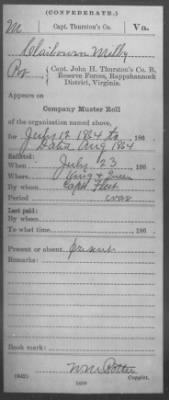 (CONFEDERATE.)
M Capt. Thurston's Co. Va.
Milby
Pvt, Capt. John H. Thurston's Co. B,
Reserve Forces, Rappahannock
District, Virginia.
Appears on
Company Muster Roll
of the organization named above,
for July 12 1864 to 186 .
Date Aug 1864
Enlisted:
When July 23 186 .
Where King & Queen
By whom Capt. Fleet
Period war
Last paid:
By whom
To what time 186 .
Present or absent present
Remarks:
Book mark:
(642) Wm Potter
Copyist.